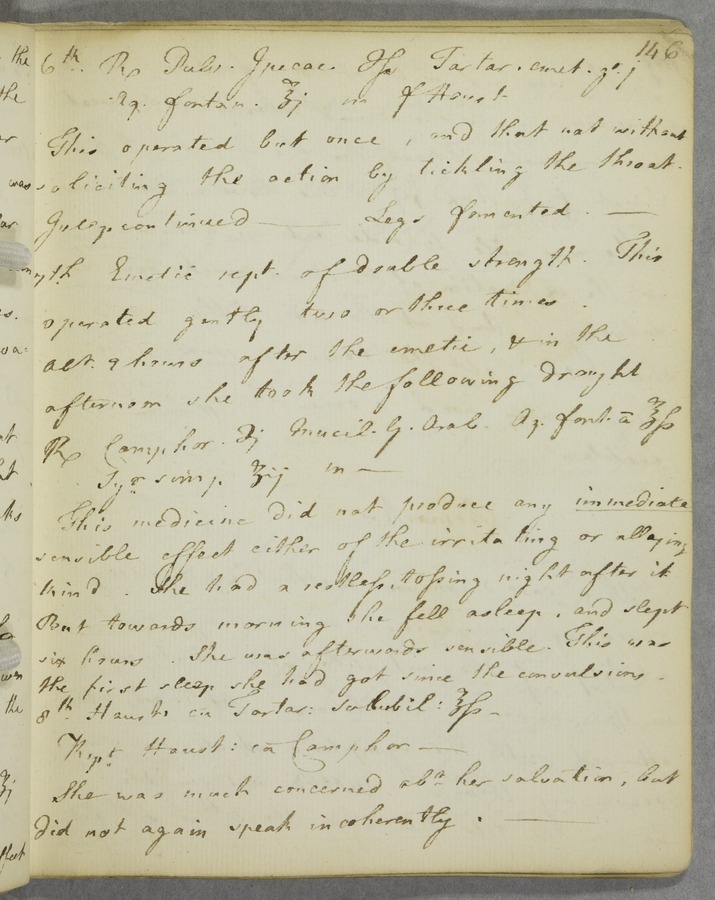 146
6th. Rx Pulv. Ipecac. ʒſs Tartar. emet. gr. j
Aq. fontan. ℥j m f Haust
This operated but once, and that not without
soliciting the action by tickling the throat.
Julep continued —— Legs fomented. —
7th. Emetic rept. of double strength. This
operated gently two or three times.
aet. 9 hours after the emetic, & in the
afternoon she took the following draught
Rx Camphor. ℈j Mucil. G. Arab. Aq. font. ā ℥ſs
Syr. simp. ʒij m —
This medicine did not produce any immediate
sensible effect either of the irritating or allaying
kind. She had a restless, tossing night after it
But towards morning she fell asleep, and slept
six hours. She was afterwards sensible. This was
the first sleep she had got since the convulsions.
8th Haust: cū Tartar: solubil: ℥ſs —
Rept Haust: cū Camphor —
She was much concerned abt her salvation, but
did not again speak incoherently. ——